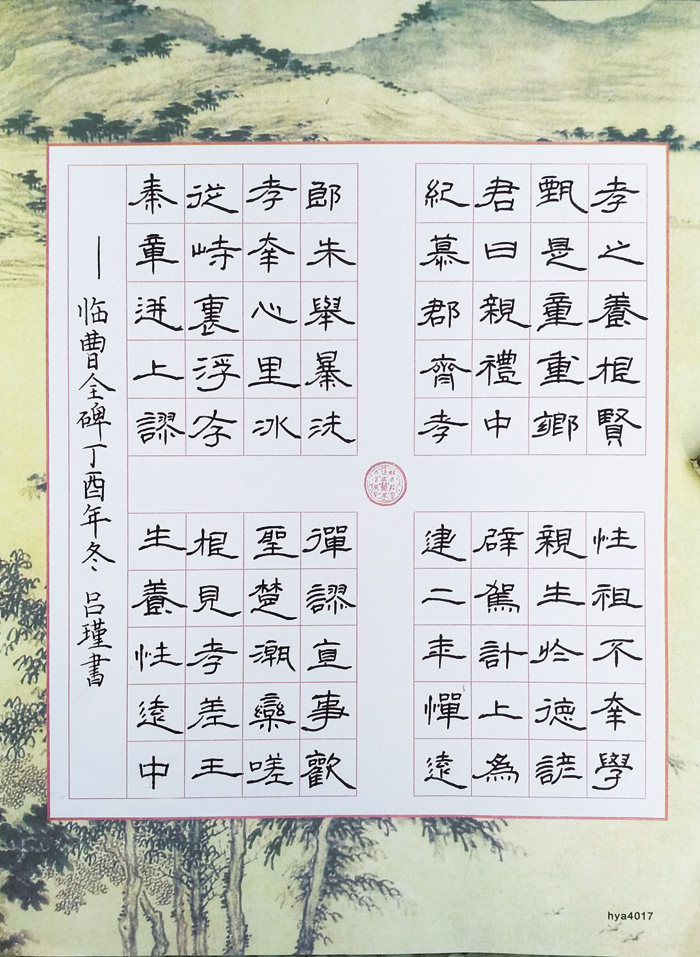 孝之養根賢
甄是童重鄉
君曰親禮中
紀慕郡齊孝
郎朱舉暴洗
孝奉心里冰
從峙裏浮存
秦章上謬
性祖不奉學
親生於德諺
辟駕計上為
建二年憚遠
彈謬宣事歡
聖楚潮欒嗟
根見孝差王
生養性遠中
—临曹全碑丁酉年冬 吕瑾書
hya4017